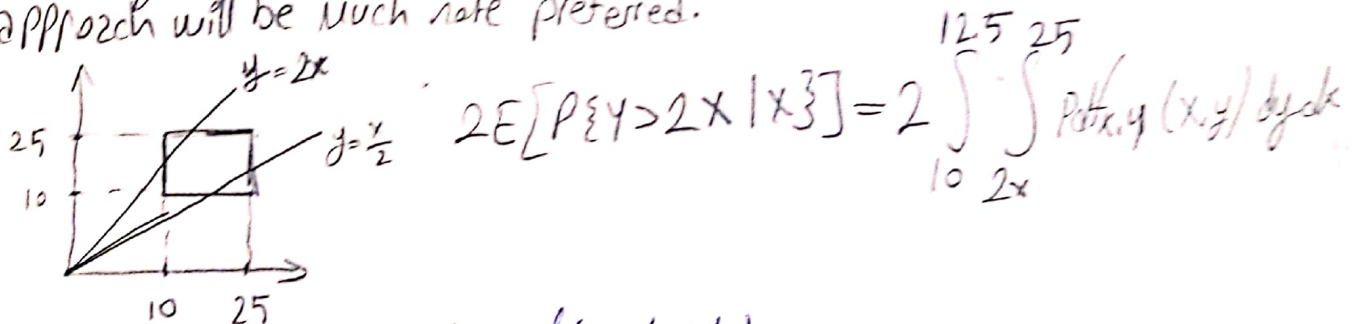 approach will be much more preferred.
y=2x
25
10
y=x/2
10 25
2E[P{Y>2X|X}]=2 ∫_{10}^{12.5} ∫_{2x}^{25} Pdf_{x,y}(x,y) dydx